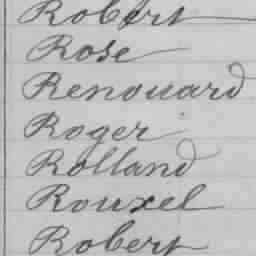 Robert
Rose
Renouard
Roger
Rolland
Rouxel
Robert